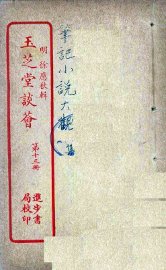 筆記小說大觀
明 徐應秋輯
玉芝堂談薈
第十三冊
進步書
局校印